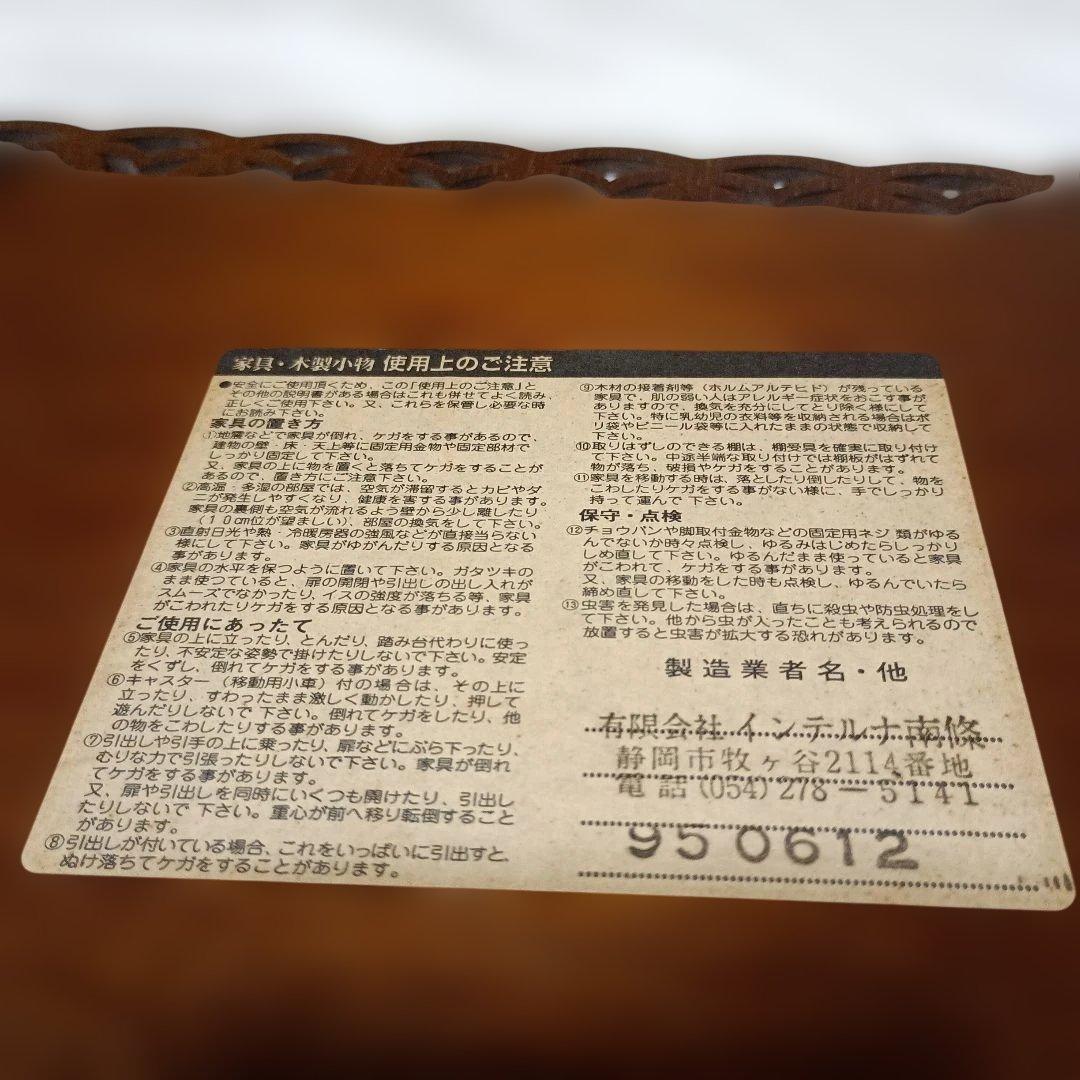 家具・木製小物 使用上のご注意
●安全にご使用頂くため、この「使用上のご注意」と
その他の説明書がある場合はこれも併せてよく読み、
正しくご使用下さい。又、これらを保管し必要な時
にお読み下さい。
家具の置き方
①地震などで家具が倒れ、ケガをする事があるので、
建物の壁・床・天上等に固定用金物や固定部材で
しっかり固定して下さい。
又、家具の上に物を置くと落ちてケガをすることが
あるので、置き方にご注意下さい。
②高温・多湿の部屋では、空気が滞留するとカビやダ
ニが発生しやすくなり、健康を害する事があります。
家具の裏側も空気が流れるよう壁から少し離したり
（10cm位が望ましい）、部屋の換気をして下さい。
③直射日光や熱・冷暖房器の強風などが直接当らない
様にして下さい。家具がゆがんだりする原因となる
事があります。
④家具の水平を保つように置いて下さい。ガタツキの
まま使つていると、扉の開閉や引出しの出し入れが
スムーズでなかったり、イスの強度が落ちる等、家具
がこわれたりケガをする原因となる事があります。
ご使用にあったて
⑤家具の上に立ったり、とんだり、踏み台代わりに使っ
たり、不安定な姿勢で掛けたりしないで下さい。安定
をくずし、倒れてケガをする事があります。
⑥キャスター（移動用小車）付の場合は、その上に
立ったり、すわったまま激しく動かしたり、押して
遊んだりしないで下さい。倒れてケガをしたり、他
の物をこわしたりする事があります。
⑦引出しや引手の上に乗ったり、扉などにぶら下ったり、
むりな力で引張ったりしないで下さい。家具が倒れ
てケガをする事があります。
又、扉や引出しを同時にいくつも開けたり、引出し
たりしないで下さい。重心が前へ移り転倒すること
があります。
⑧引出しが付いている場合、これをいっぱいに引出すと、
ぬけ落ちてケガをすることがあります。
⑨木材の接着剤等（ホルムアルテヒド）が残っている
家具で、肌の弱い人はアレルギー症状をおこす事が
ありますので、換気を充分にしてとり除く様にして
下さい。特に乳幼児の衣料等を収納される場合はポ
リ袋やビニール袋等に入れたままの状態で収納して
下さい。
⑩取りはずしのできる棚は、棚受具を確実に取り付け
て下さい。中途半端な取り付けでは棚板がはずれて
物が落ち、破損やケガをすることがあります。
⑪家具を移動する時は、落としたり倒したりして、物を
こわしたりケガをする事がない様に、手でしっかり
持って運んで下さい。
保守・点検
⑫チョウバンや脚取付金物などの固定用ネジ類がゆる
んでないか時々点検し、ゆるみはじめたらしっかり
しめ直して下さい。ゆるんだまま使っていると家具
がこわれて、ケガをする事があります。
又、家具の移動をした時も点検し、ゆるんでいたら
締め直して下さい。
⑬虫害を発見した場合は、直ちに殺虫や防虫処理をし
て下さい。他から虫が入ったことも考えられるので
放置すると虫害が拡大する恐れがあります。
製造業者名・他
有限会社 インテルナ南條
静岡市牧ヶ谷2114番地
電話(054)278－5141
950612